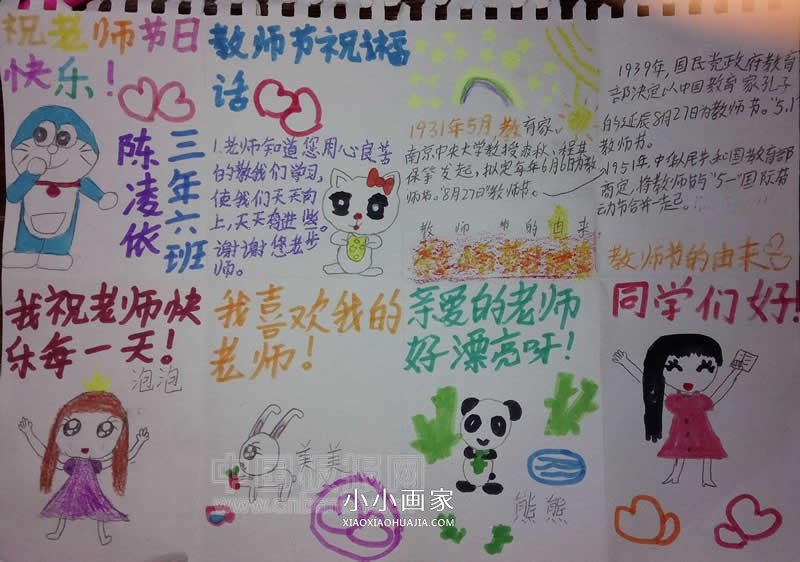 祝老师节日
快乐！
三年六班
陈凌依
教师节祝福
话
1.老师知道您用心良苦
的教我们学习，
使我们天天向
上，天天有进些。
谢谢您老师
师。
1931年5月，教育家、
南京中央大学教授
发起，拟定每年6月6日为教
师节。"8月27日"教师节。
教师节的由来
1939年，国民党政府教育
部决定以中国教育家孔子
的诞辰8月27日为教师节。"5.1"
教师节。
1951年，中华人民共和国教育部
商定，将教师节与"5一"国际劳
动节合并一起。
教师节的由来
我祝老师快
乐每一天！
泡泡
我喜欢我的
老师！
美美
亲爱的老师
好漂亮呀！
熊熊
同学们好！
小小画家
XIAOXIAOHUAJIA.COM